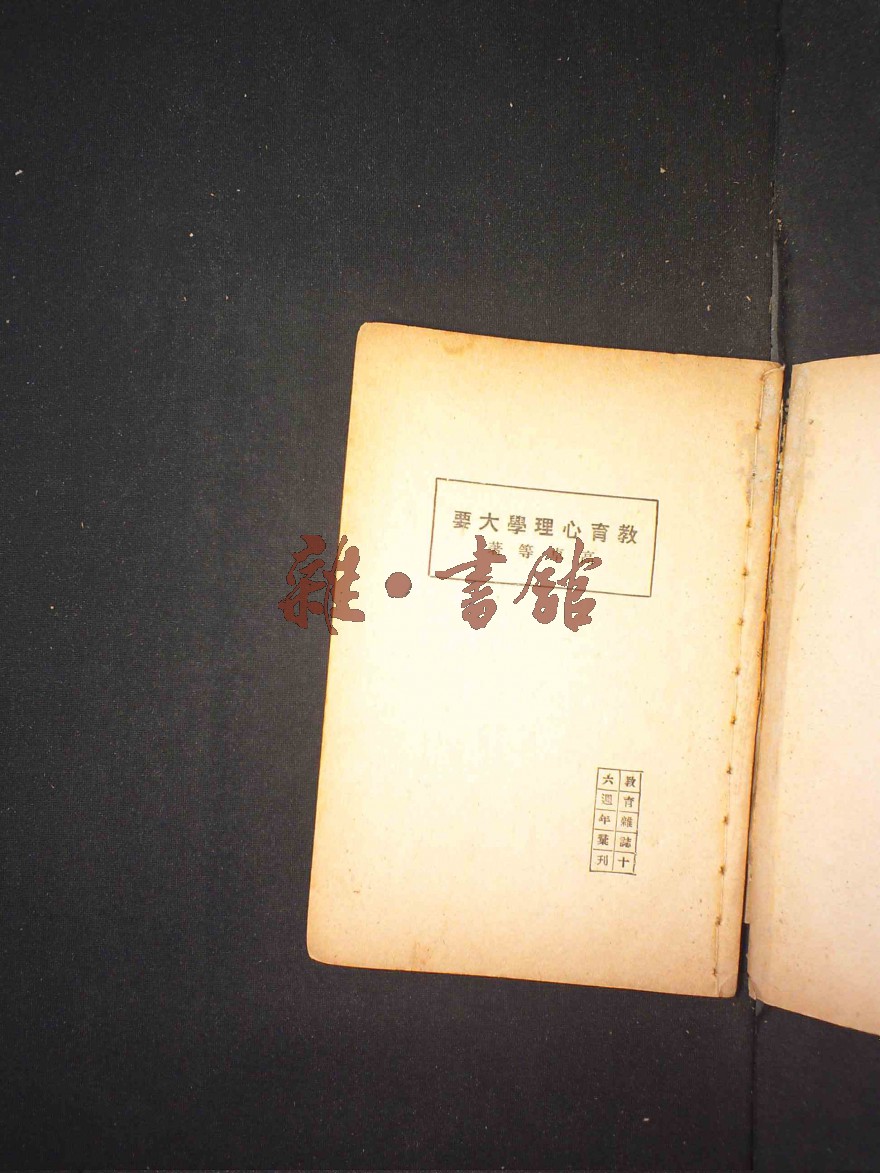 教育心理學大要
等著
雜·書館
教育雜誌十
六週年彙刊